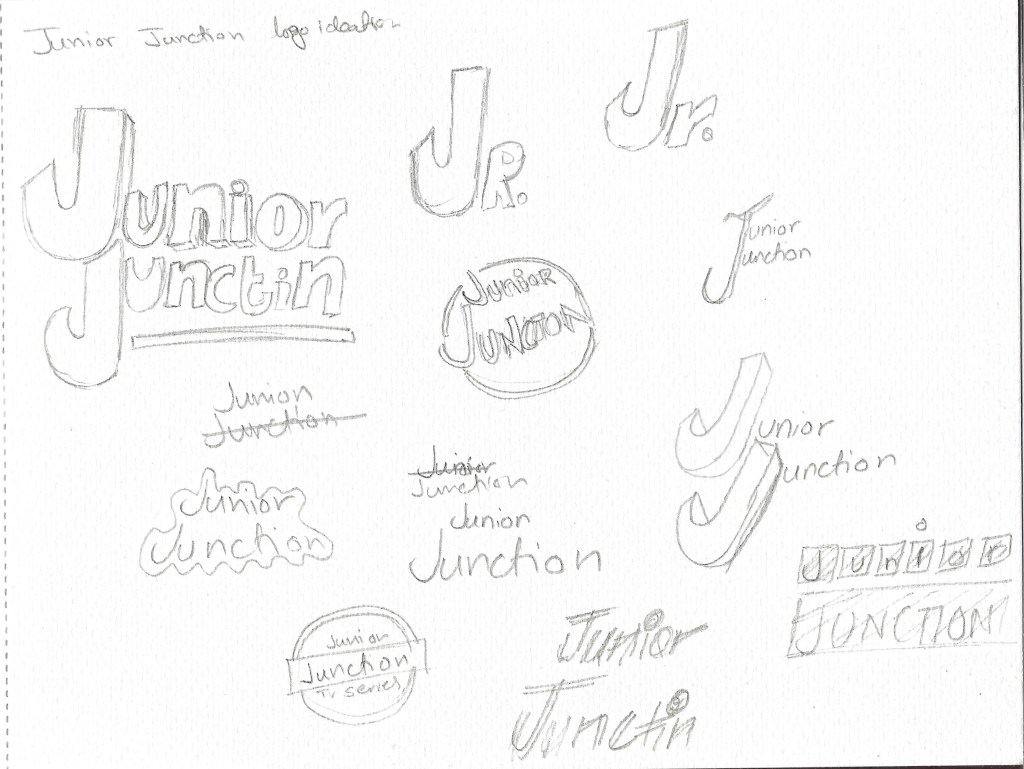 Junior Junction logo ideation
Jr.
JR.
Junior
Junctin
Junior
Junction
JUNIOR
JUNCTION
Junior
Junction
Junion
Junction
Junior
Junction
Junior
Junction
Junion
Junction
Junior
Junction
JUNIOR
JUNCTION
Junior
Junction
TV series
Junior
Junctin